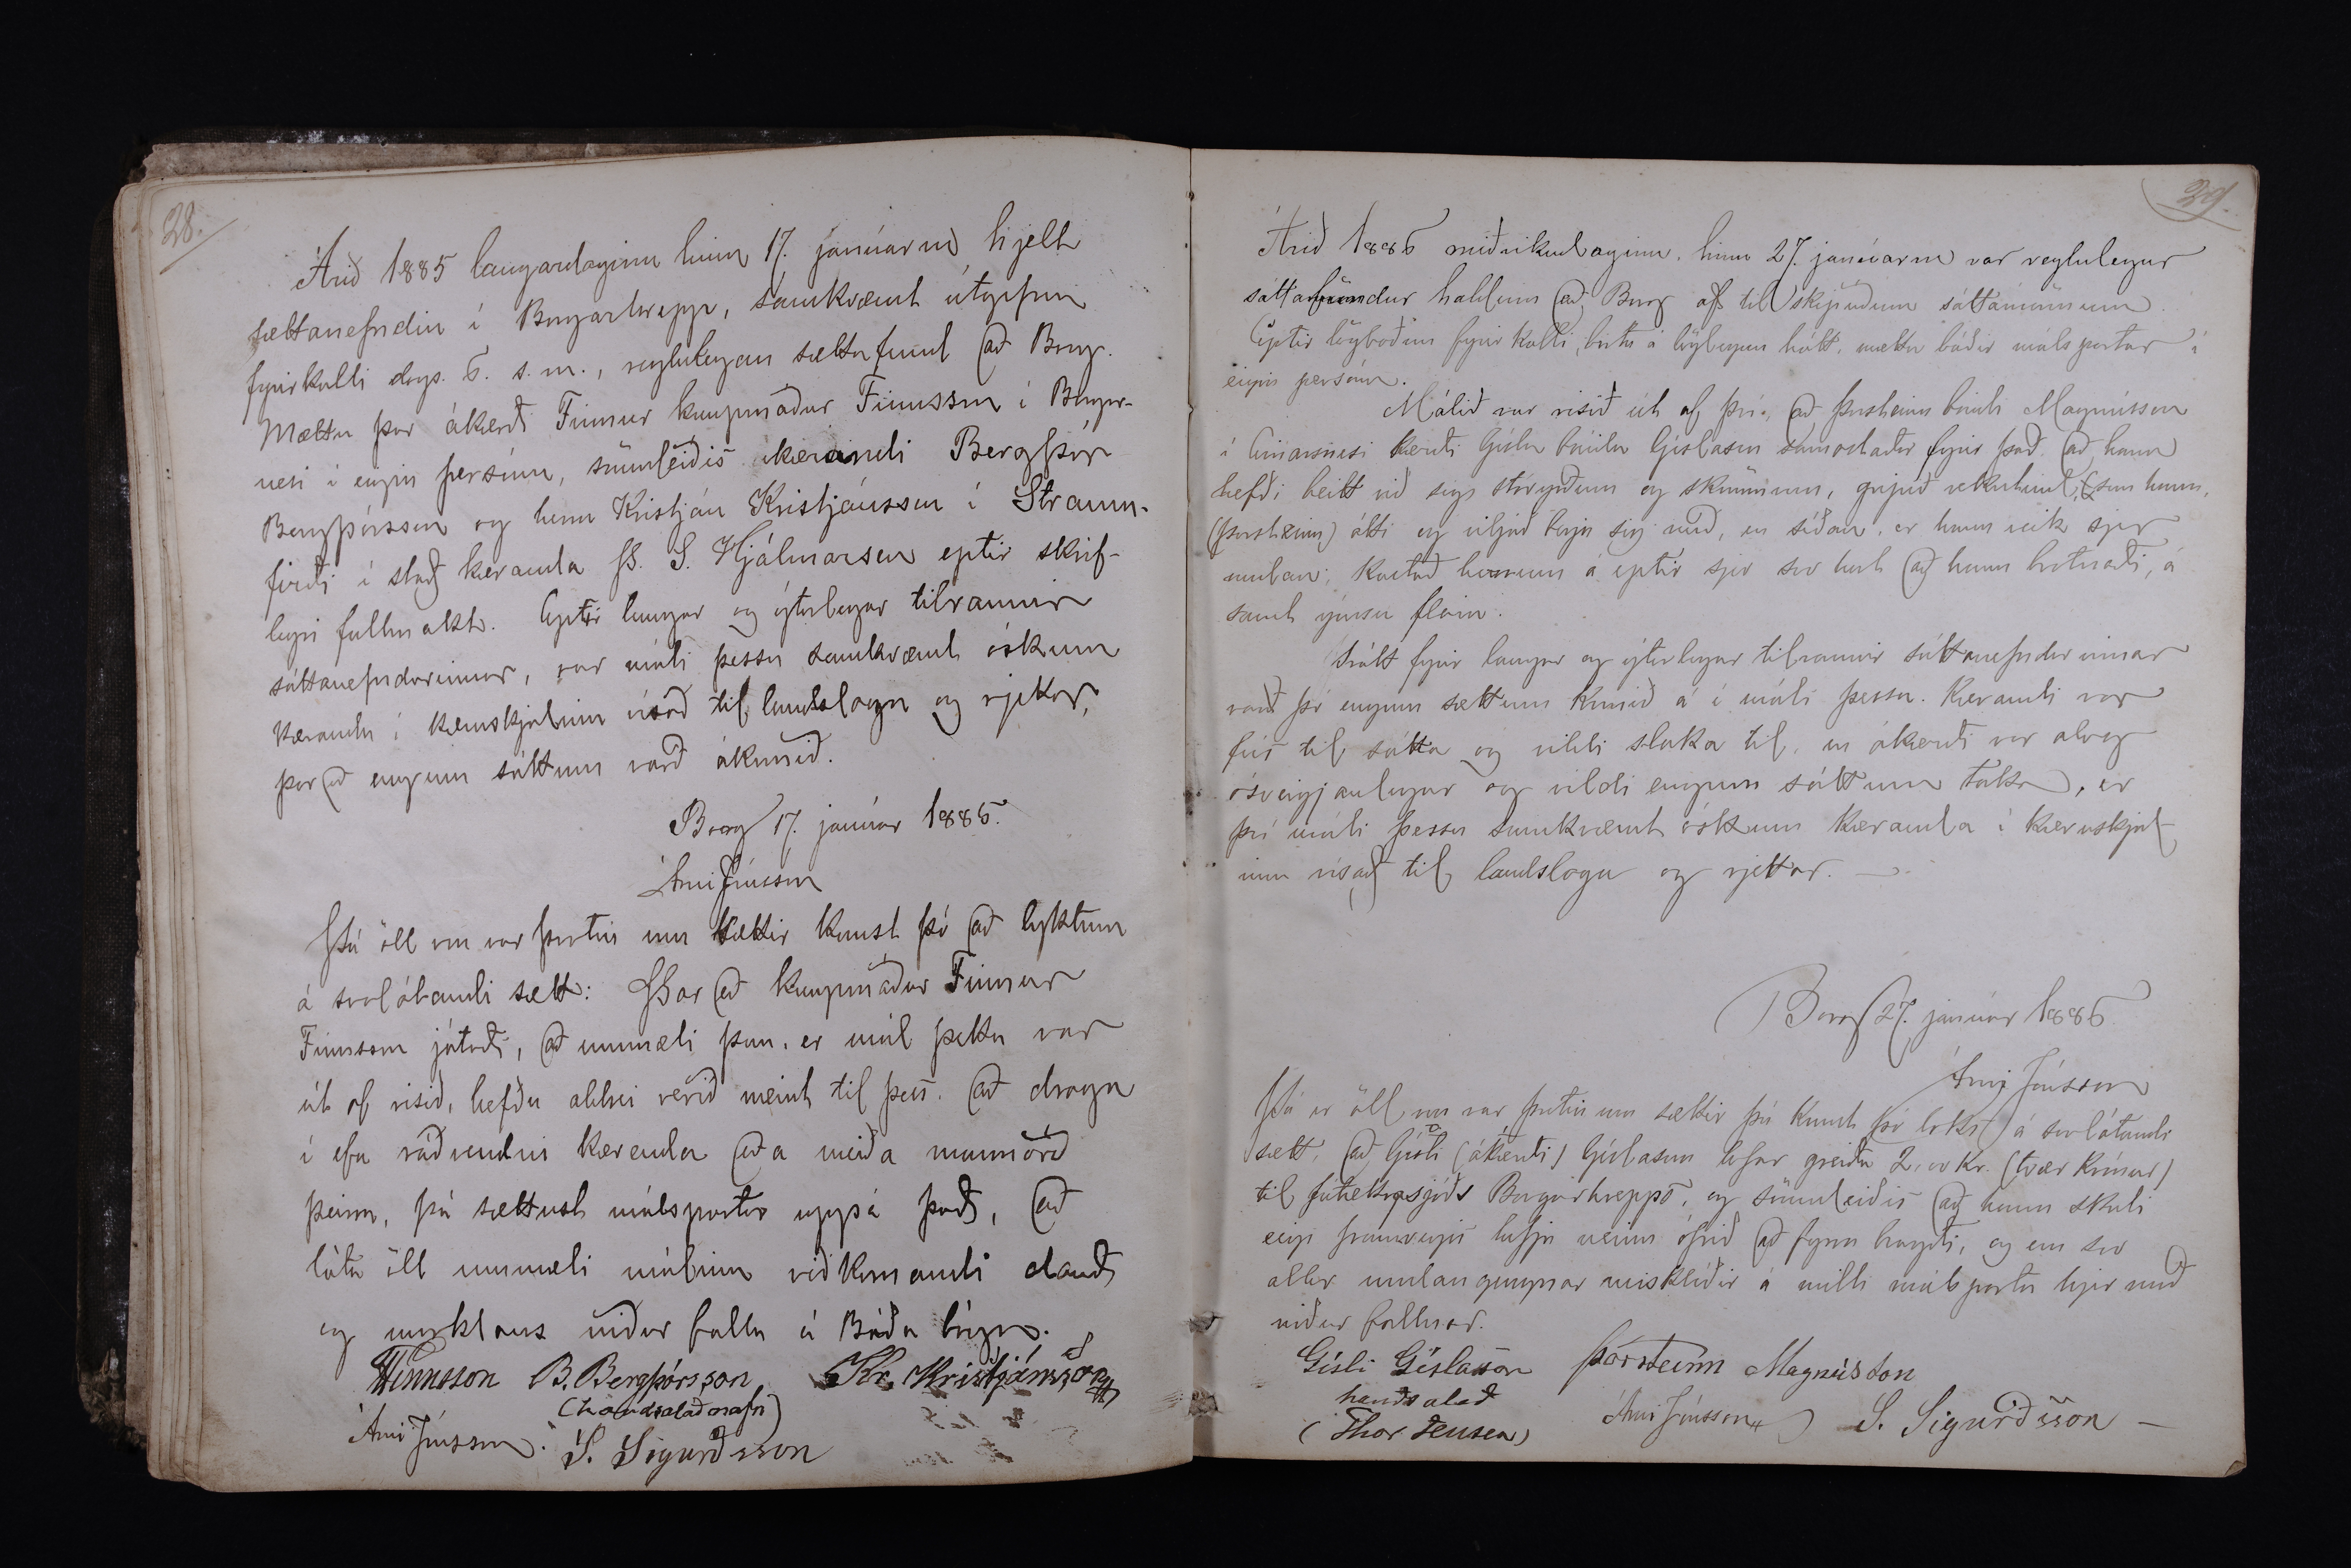 28.
Árið 1885 laugardaginn hinn 17. januarm, hjelt
sættanefndin í Borgarhrepp, samkvæmt útgefnu
fyrirkalli dags. 6. s. m., reglulegan sáttafund að Borg.
Mættu þar ákærði Finnur kaupmaður Finnsson í Borgar-
nesi í eigin persónu, sömuleiðis ákærandi Bergþór
Bergþórsson og herra Kristján Kristjánsson í Straum-
firði í stað kæranda Þ. S. Hjálmarsen eptir skrif-
legri fullmakt. Eptir langar og ýtarlegar tilraunir
sáttanefndarinnar, var máli þessu samkvæmt óskum
kæranda í kæruskjalinu vísað til landslaga og rjettar,
þar að engum sáttum varð ákomið.
Borg 17. januar 1885.
Árni Jónsson
Þá öll von var þrotin um sættir komst þó að lyktum
á svolátandi sætt: Þar eð kaupmaður Finnur
Finnsson játaði, að ummæli þau, er mál þetta var
út af risið, hefðu aldrei verið meint til þess að draga
í efa ráðvendni kæranda eða meiða mannorð
þeirra, þá sættust málspartar uppá það, að
láta öll ummæli málinu viðkomandi dauð
og marklaus niður falla á báða bóga.
F Finnsson B. Bergþórsson Kr. Kristjánsson
(handsalað nafn)
Árni Jónsson. S. Sigurðsson
29.
Árið 1886 miðvikudaginn hinn 27. januarm var reglulegur
sáttafundur haldinn að Borg af til skipuðum sáttamönnum.
Eptir lögboðnu fyrirkalli, birtu á löglegan hátt, mættu báðir málspartar í
eigin persónu.
Málið var risið út af því, að Þorsteinn bóndi Magnússon
í kærði Gísla bónda Gíslason samastaðar fyrir það að hann
hefði beitt við sig stóryrðum og skömmum, gripið rekuhind, (sem hann,
(Þorsteinn) átti og viljað berja sig með, en síðan, er hann veik sjer
undan, kastað honum á eptir sjer svo hart að hann brotnaði, á
samt ýmsu fleiru.
Þrátt fyrir langar og ýtarlegar tilraunir sáttanefndarinnar
varð þó engum sættum komið á í máli þessu. Kærandi var
fús til sátta og vildi slaka til, en ákærði var alveg
ósveigjanlegur og vildi engum sáttum taka, er
því máli þessu samkvæmt óskum kæranda í kæruskjal-
inu vísað til landslaga og rjettar. —
Borg 27. januar 1886
Árni Jónsson
Þá er öll von var þrotin um sættir þá komst þó loks á svolátandi
sætt, að Gísli (ákærði) Gíslason lofar greiða 2,00 kr. (tvær krónur)
til fátækrasjóðs Borgarhrepps, og sömuleiðis að hann skuli
eigi framvegis hefja neinn ófrið að fyrra bragði, og eru svo
allar undangengnar misklíðir á milli málsparta hjer með
niður fallnar.
Gísli Gíslason Þorsteinn Magnússon
handsalað
(Thor Jensen) Árni Jónsson S. Sigurðsson —